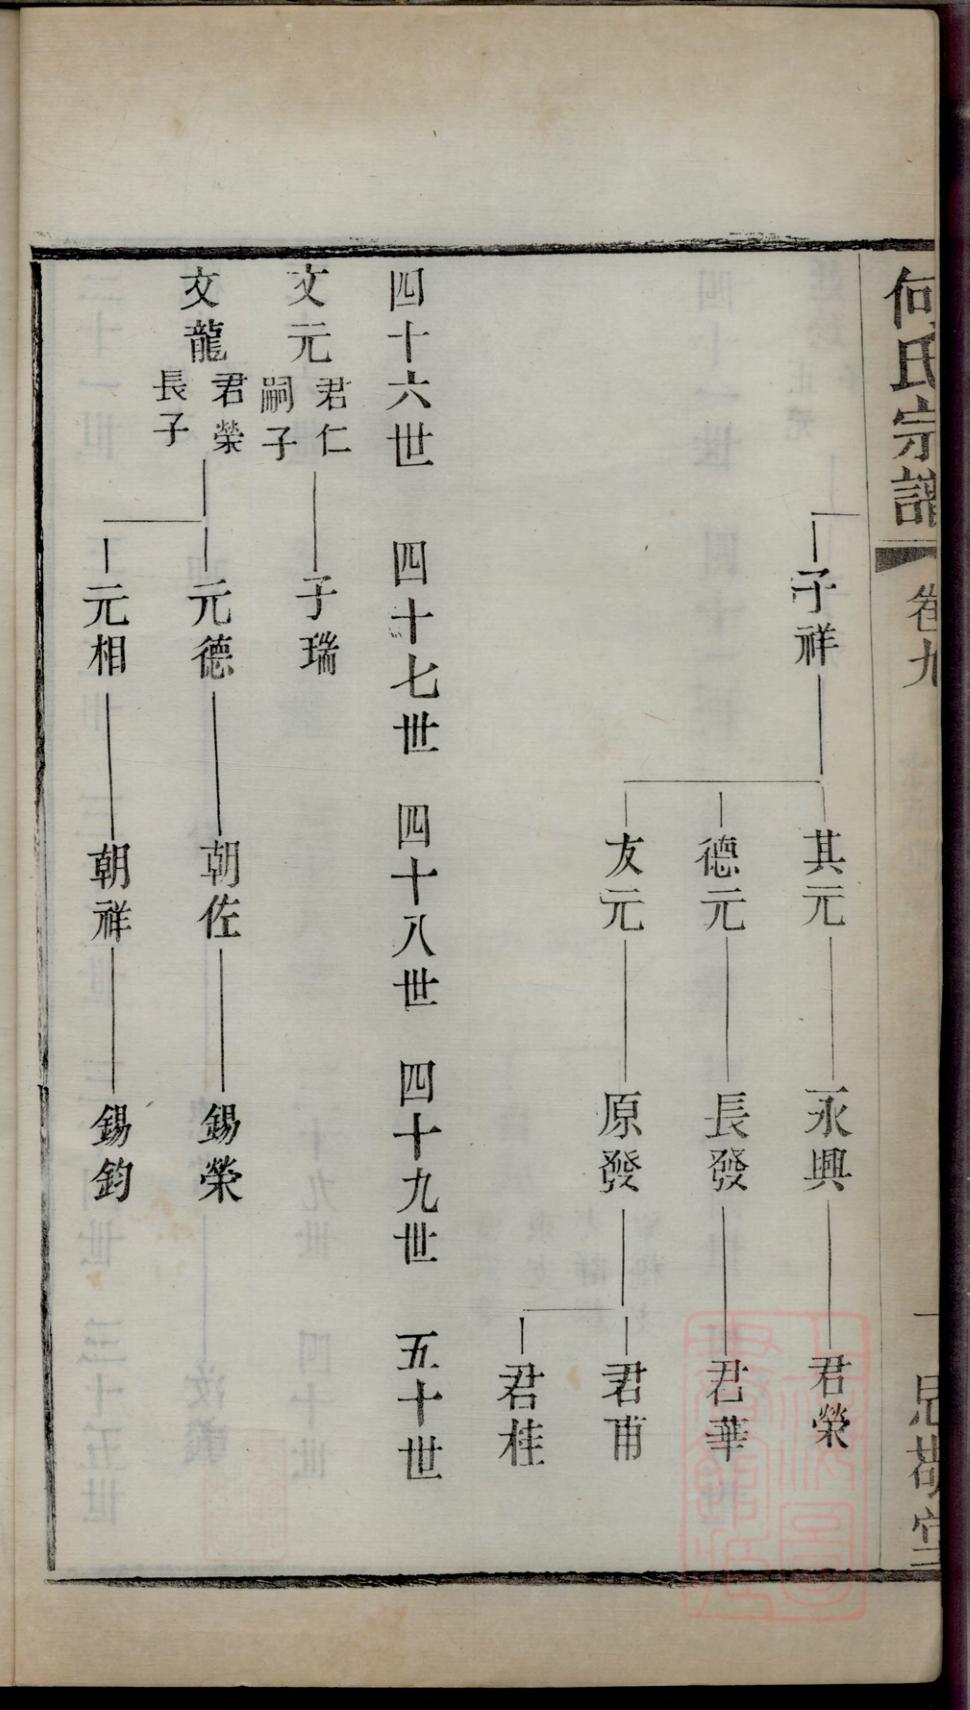 何氏宗譜
卷九
一
思敬堂
子祥
其元
永興
君榮
德元
長發
君華
友元
原發
君甫
君桂
四十六世 四十七世 四十八世 四十九世 五十世
文元 君仁嗣子
子瑞
文龍 君榮長子
元德
朝佐
錫榮
元相
朝祥
錫鈞